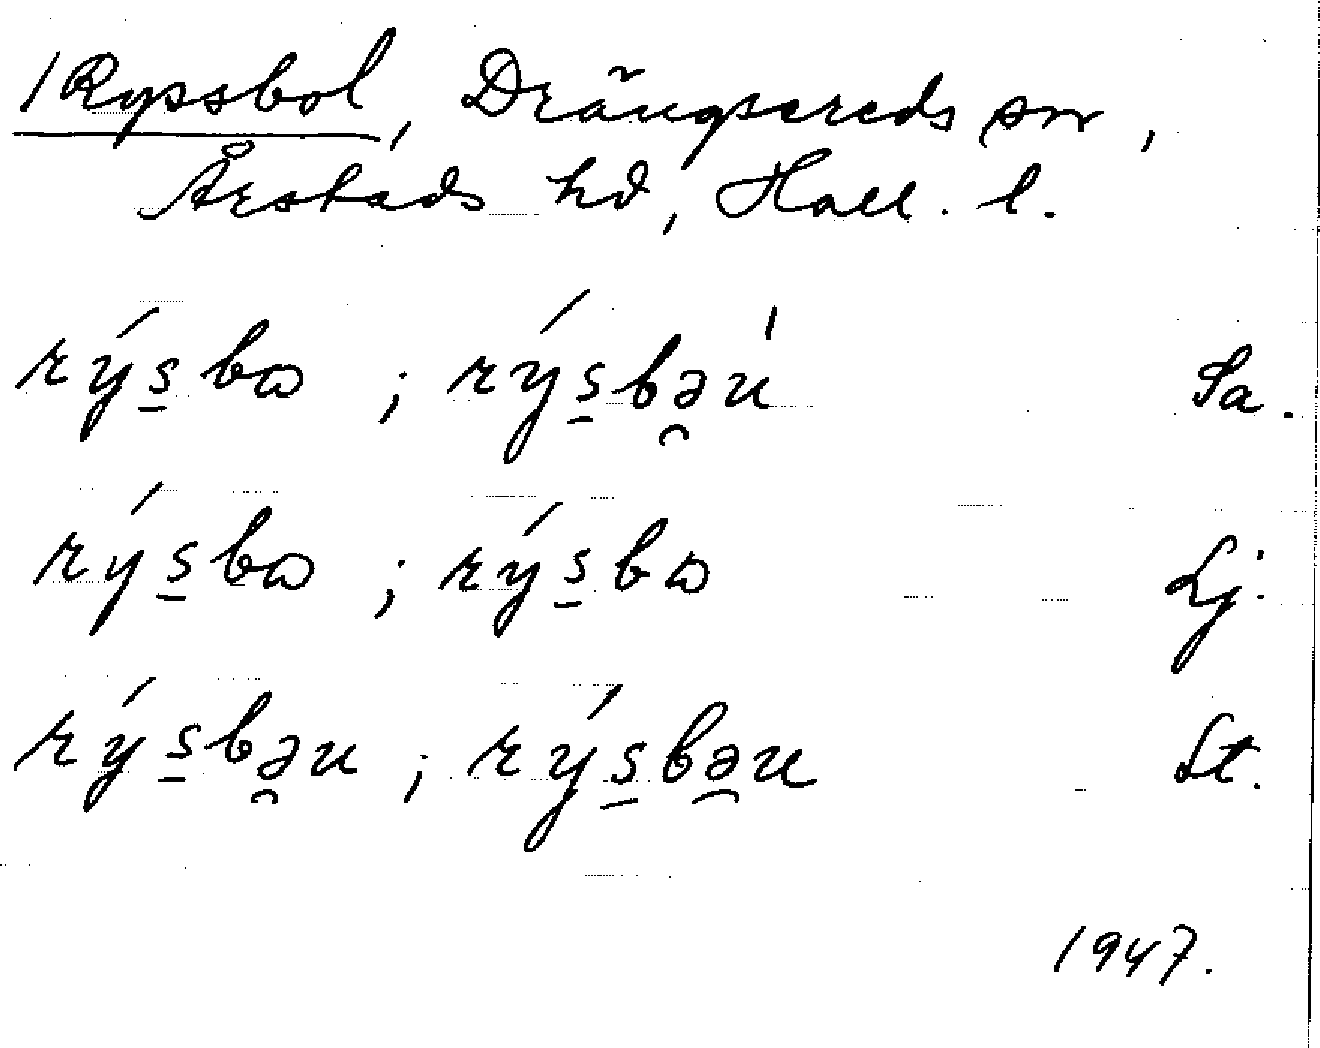 Ryssbol, Drängsereds sn,
Årstads hd, Hall. l.
rýs̱bɷ ; rýs̱bə̯u̍ Sa.
rýs̱bɷ ; rýs̱bɷ Lj.
rýs̱bə̯u ; rýs̱bə̯u St.
1947.